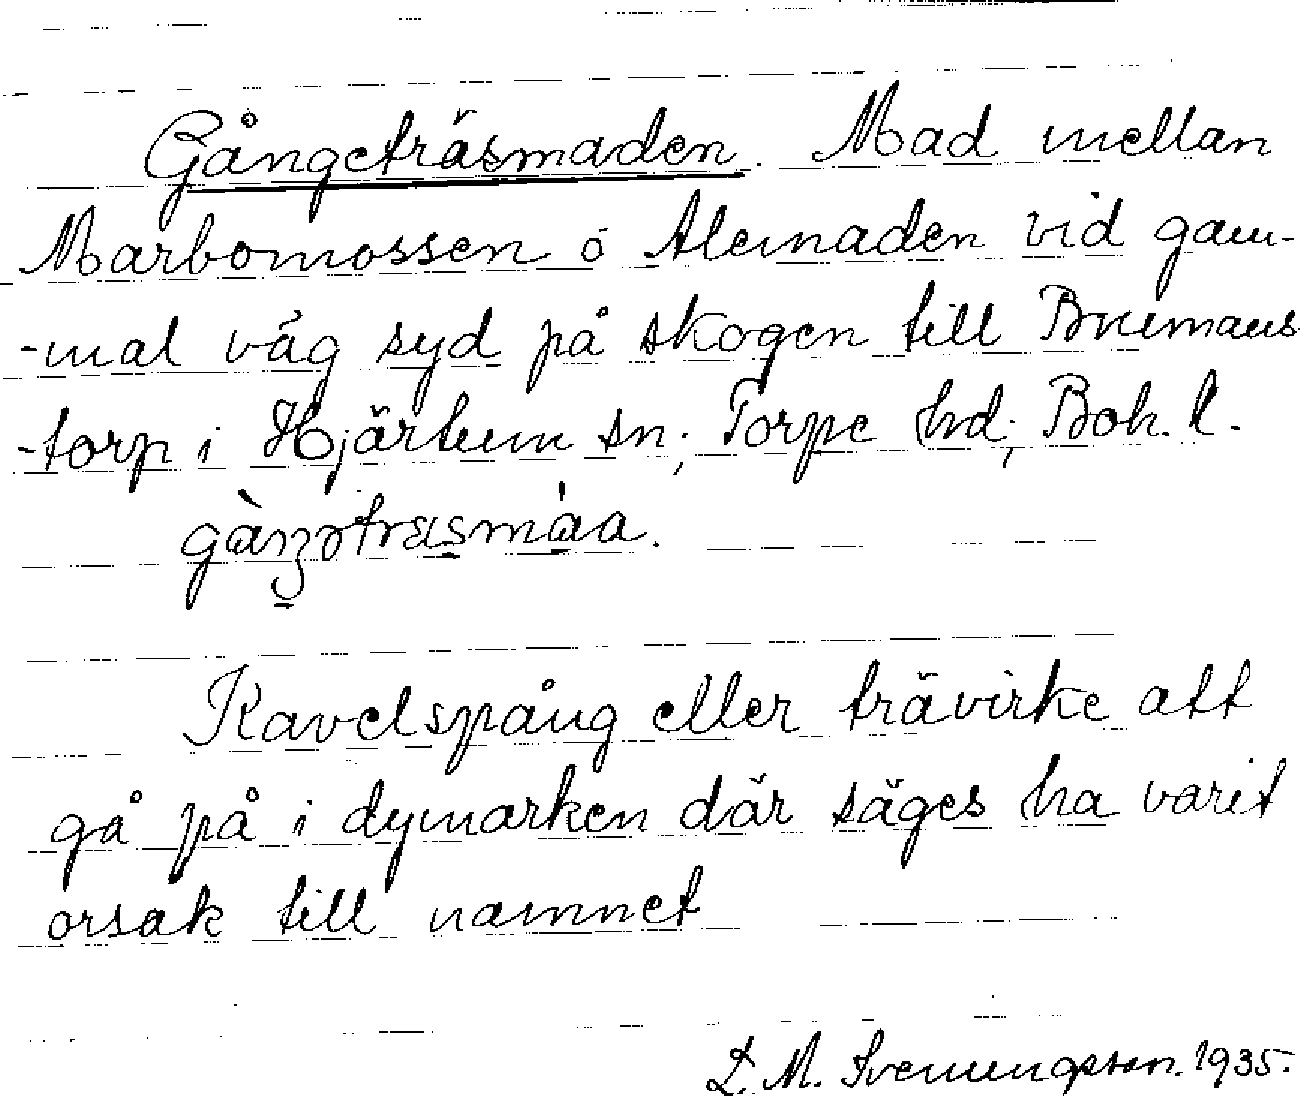 Gångeträsmaden. Mad mellan
Marbomossen o Alemaden vid gam-
-mal väg syd på skogen till Bremans
-torp i Hjärtum sn; Torpe hd; Boh. l.
Kavelspång eller trävirke att
gå på i dymarken där säges ha varit
orsak till namnet
L. M. Svenungsson. 1935.